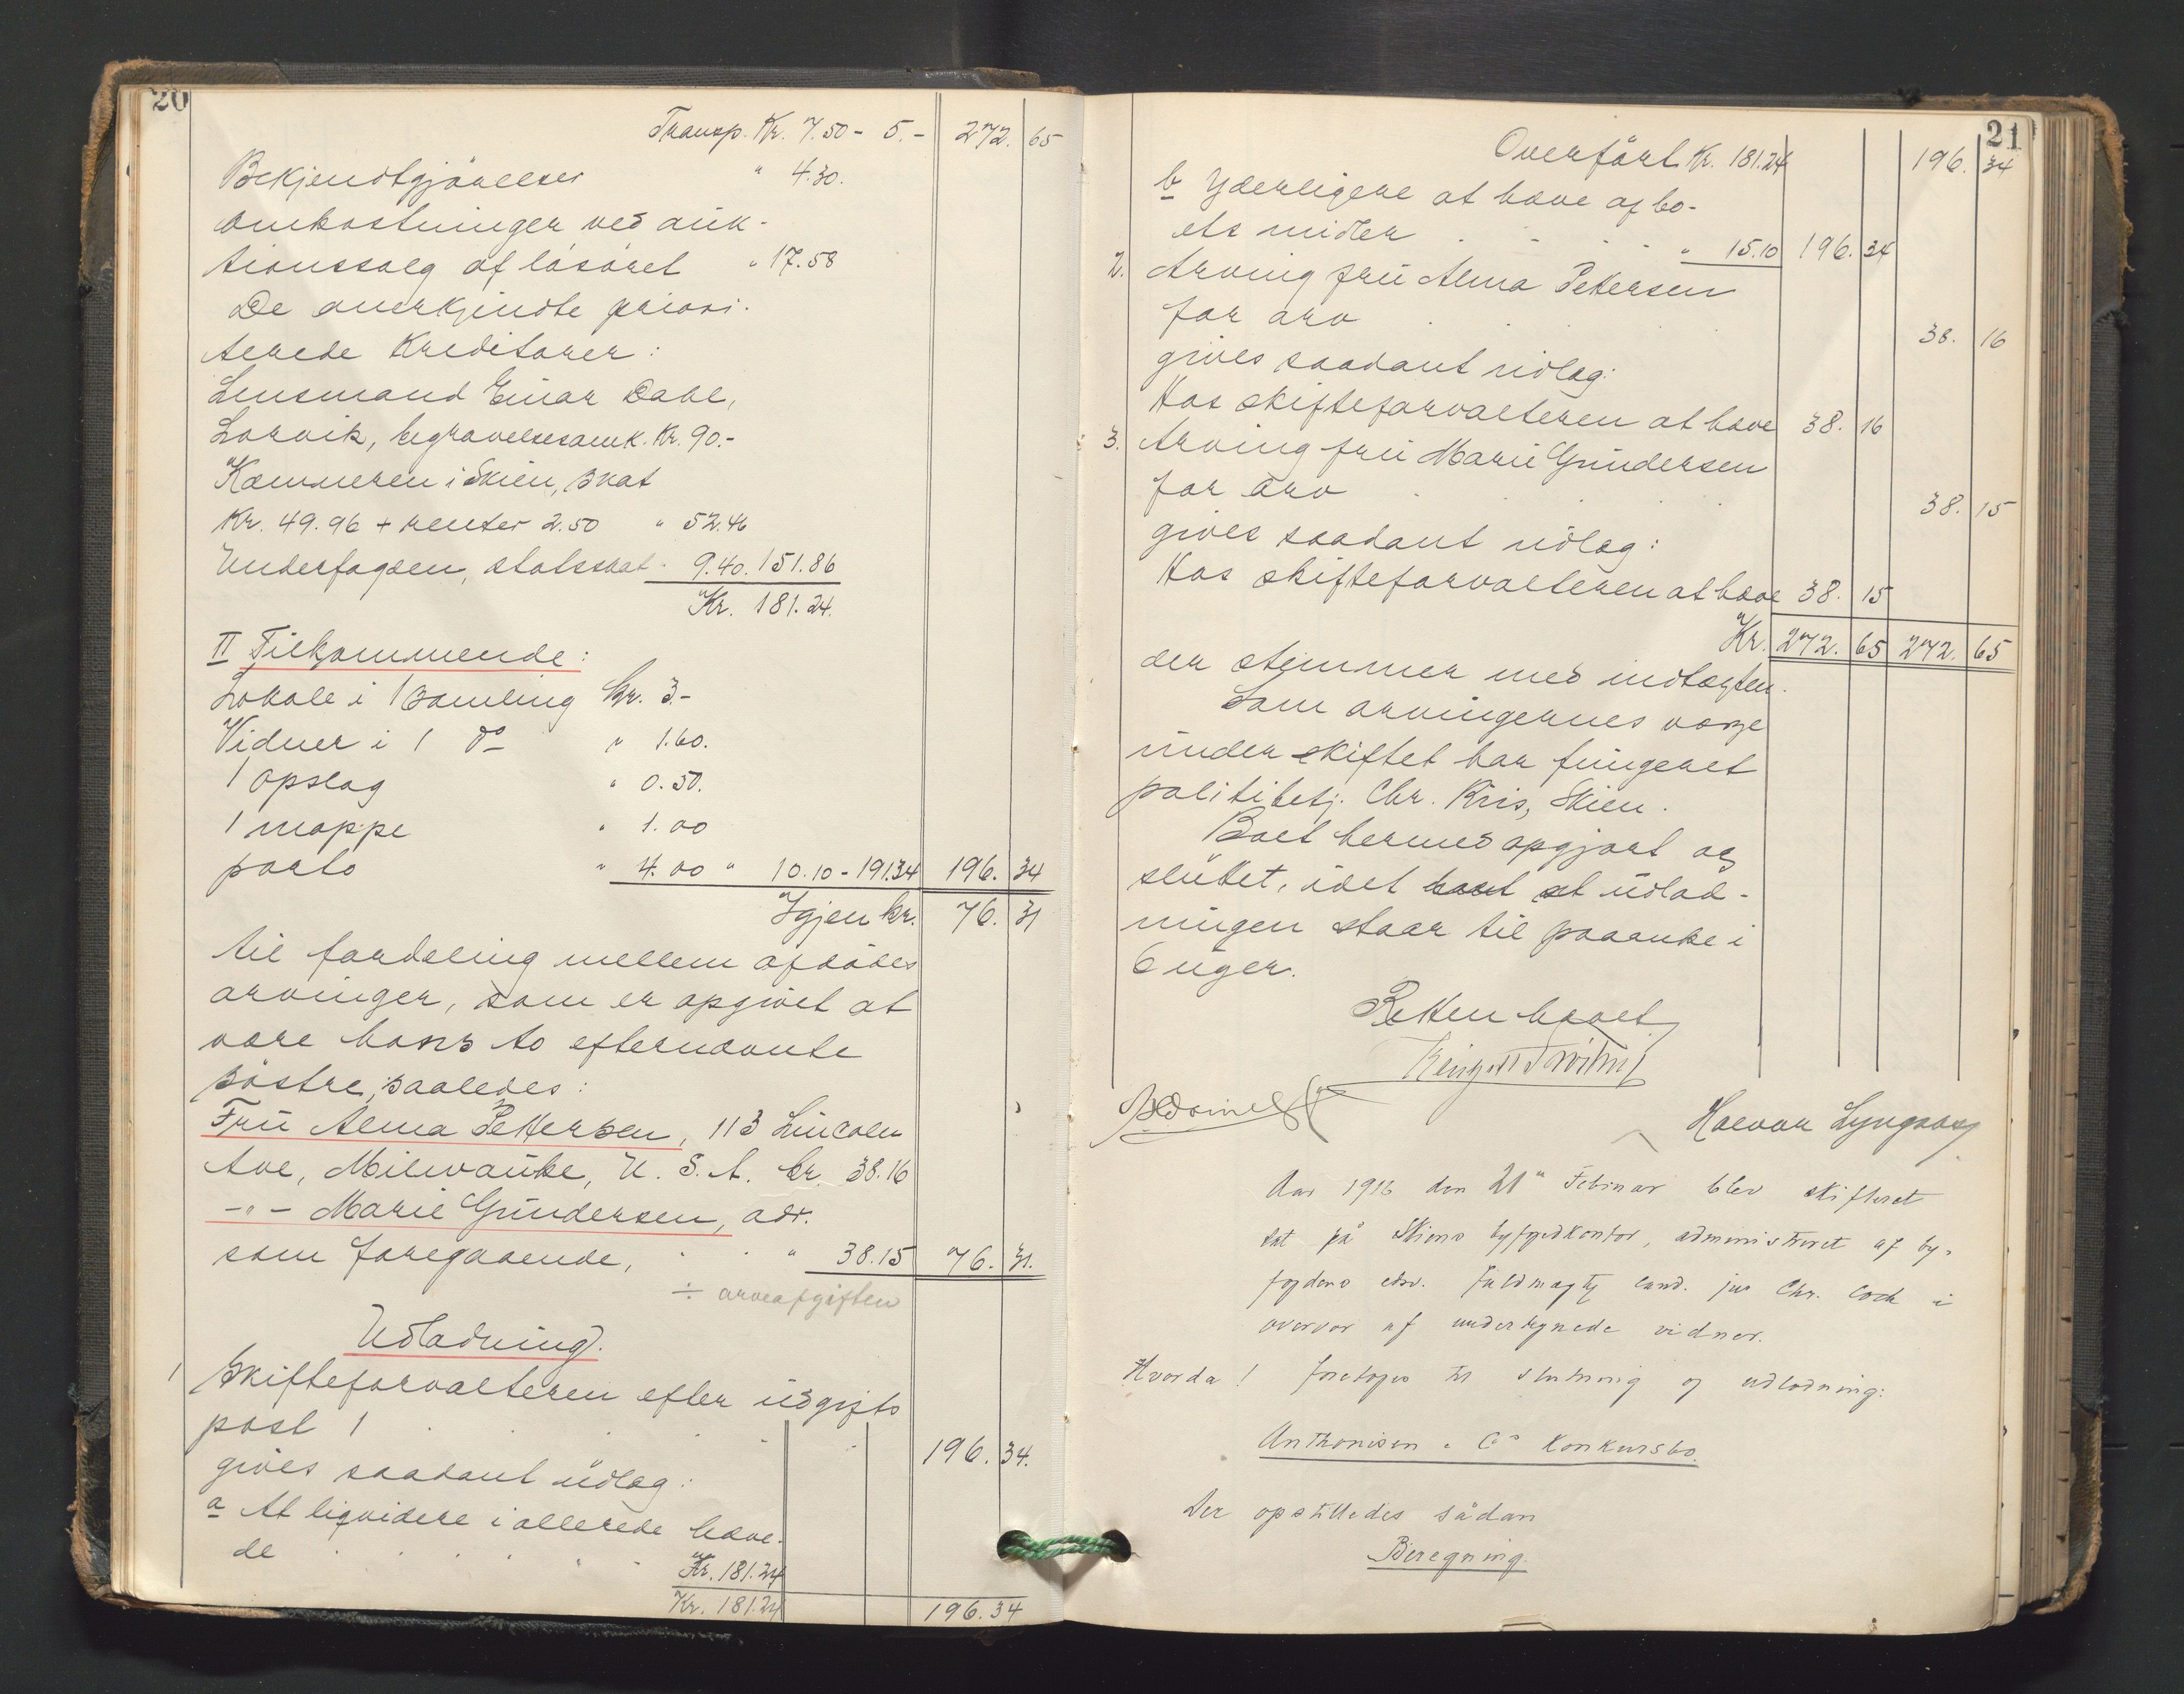 20
Transp. Kr. 7.50 - 5.- 272. 65
Bekjendtgjörelser " 4.30.
Omkostninger ved auk-
tionssalg af lösöret " 17.58
De anerkjendte priori-
terede Kreditorer:
Lensmand Einar Dahl,
Larvik, begravelsesomk. Kr. 90.-
Kæmneren i Skien, skat
Kr. 49.96 + renter 2.50 " 52.46
Underfogden, statsskat " 9.40. 151.86
Kr. 181.24.
II Tilkommende:
Lokale i 1 samling kr. 3.-
Vidner i 1 do " 1.60.
1 opslag " 0.50.
1 mappe " 1.00
porto " 4.00 " 10.10 - 191.34 196. 34
Igjen kr. 76. 31
til fordeling mellem afdödes
arvinger, som er opgivet at
være hans to efternævnte
söstre, saaledes:
Frü Alma Pettersen, 113 Lincoln
Ave, Milwaüke, U. S. A. kr. 38.16
-"- Marie Gündersen, adr.
som foregaaende, " 38.15 76. 31.
÷ arveafgiften
Udlodning.
1 Skifteforvalteren efter üdgifts
post 1 196. 34.
gives saadant üdlæg:
a At liqvidere i allerede hæve-
de Kr. 181.24
Kr. 181.24 196.34
21
Overfört Kr. 181.24 196. 34
b Yderligere at hæve af bo-
ets midler " 15.10 196. 34
2. Arving frü Alma Petersen
for arv 38. 16
gives saadant üdlæg:
Hos skifteforvalteren at hæve 38. 16
3. Arving frü Marie Gündersen
for arv 38. 15
gives saadant üdlæg:
Hos skifteforvalteren at hæve 38. 15
Kr. 272. 65 272. 65
der stemmer med indtægten.
Som arvingernes værge
ünder skiftet har füngeret
politibetj. Chr. Kris, Skien.
Boet hermed opgjort og
slüttet, idet üdlod-
ningen staar til paaanke i
6 üger.
Retten hævet
Halvor Lyngaas
Aar 1913 den 21de Februar blev skifteret
sat på Skiens byfogedkontor, administreret af by-
fogdens edsv. fuldmægtig cand. jur Chr. Cock i
overvær af undertegnede vidner.
Hvorda! foretoges til slutning og udlodning:
Anthonisen & Co Konkursbo.
Der opstilledes sådan
Beregning.